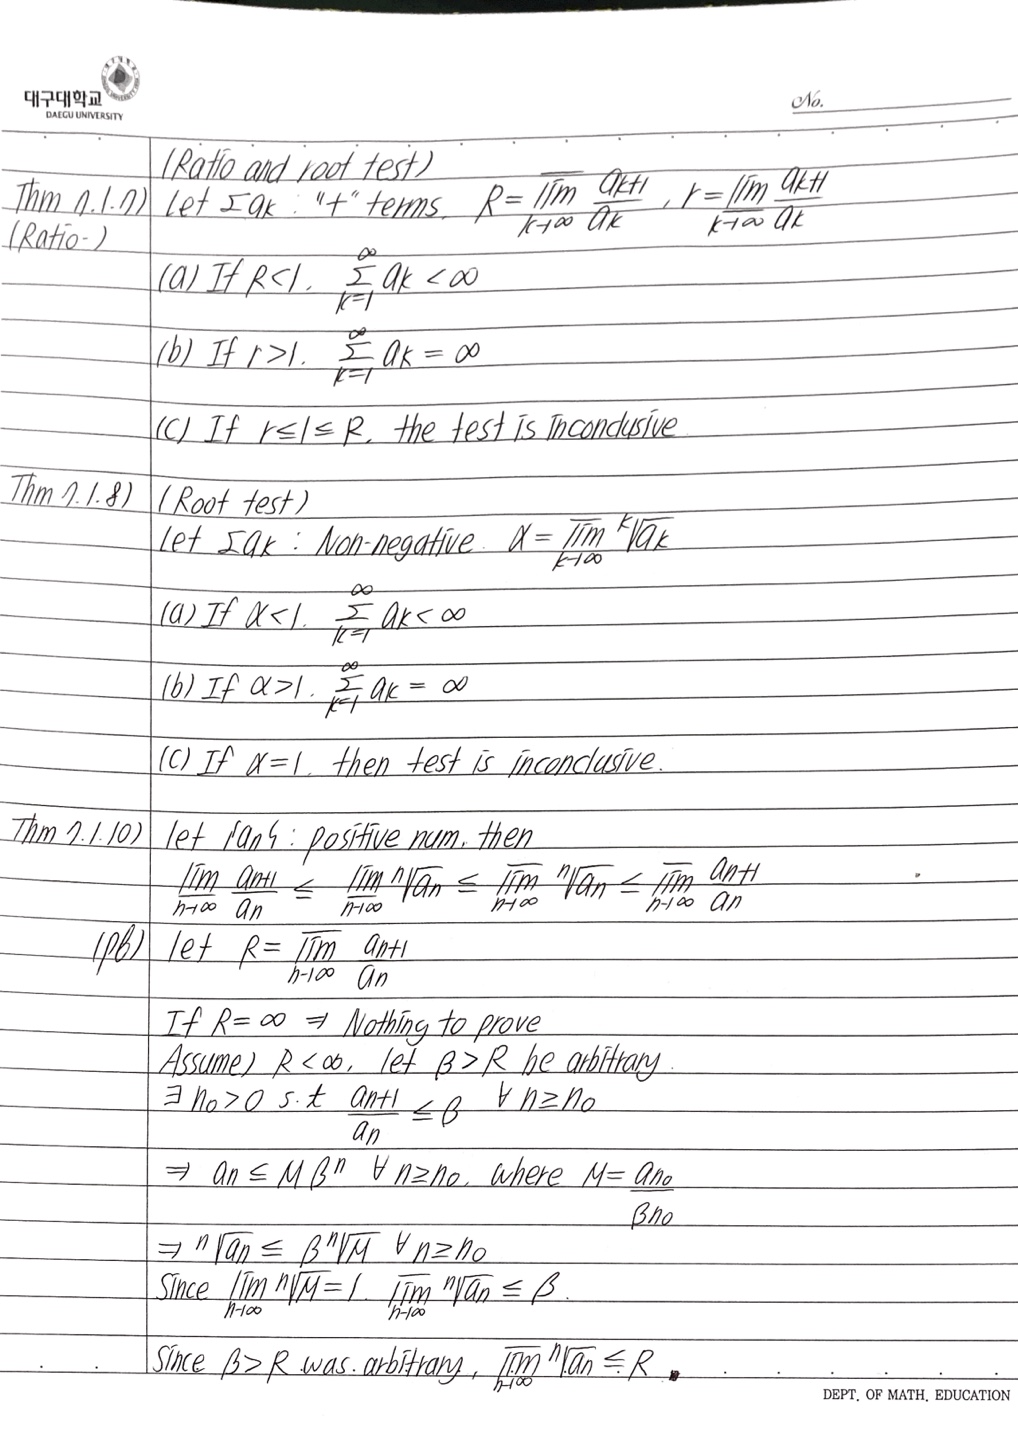 대구대학교
DAEGU UNIVERSITY
No.
(Ratio and root test)
Thm 7.1.7) Let Σak : "+" terms. R = \overline{lim}_{k→∞} ak+1/ak , r = \underline{lim}_{k→∞} ak+1/ak
(Ratio-)
(a) If R<1. Σ_{k=1}^{∞} ak < ∞
(b) If r>1. Σ_{k=1}^{∞} ak = ∞
(c) If r≤1≤R. the test is inconclusive
Thm 7.1.8) (Root test)
Let Σak : Non-negative. α = \overline{lim}_{k→∞} ᵏ√ak
(a) If α<1. Σ_{k=1}^{∞} ak < ∞
(b) If α>1. Σ_{k=1}^{∞} ak = ∞
(c) If α=1. then test is inconclusive.
Thm 7.1.10) let {an} : positive num. then
\underline{lim}_{n→∞} an+1/an ≤ \underline{lim}_{n→∞} ⁿ√an ≤ \overline{lim}_{n→∞} ⁿ√an ≤ \overline{lim}_{n→∞} an+1/an
(pf) let R = \overline{lim}_{n→∞} an+1/an
If R=∞ ⇒ Nothing to prove
Assume) R<∞, let β>R be arbitrary.
∃ n₀>0 s.t an+1/an ≤ β ∀ n≥n₀
⇒ an ≤ Mβⁿ ∀ n≥n₀. where M = an₀/βn₀
⇒ ⁿ√an ≤ β ⁿ√M ∀ n≥n₀
Since \overline{lim}_{n→∞} ⁿ√M = 1. \overline{lim}_{n→∞} ⁿ√an ≤ β.
Since β>R was arbitrary, \overline{lim}_{n→∞} ⁿ√an ≤ R
DEPT. OF MATH. EDUCATION